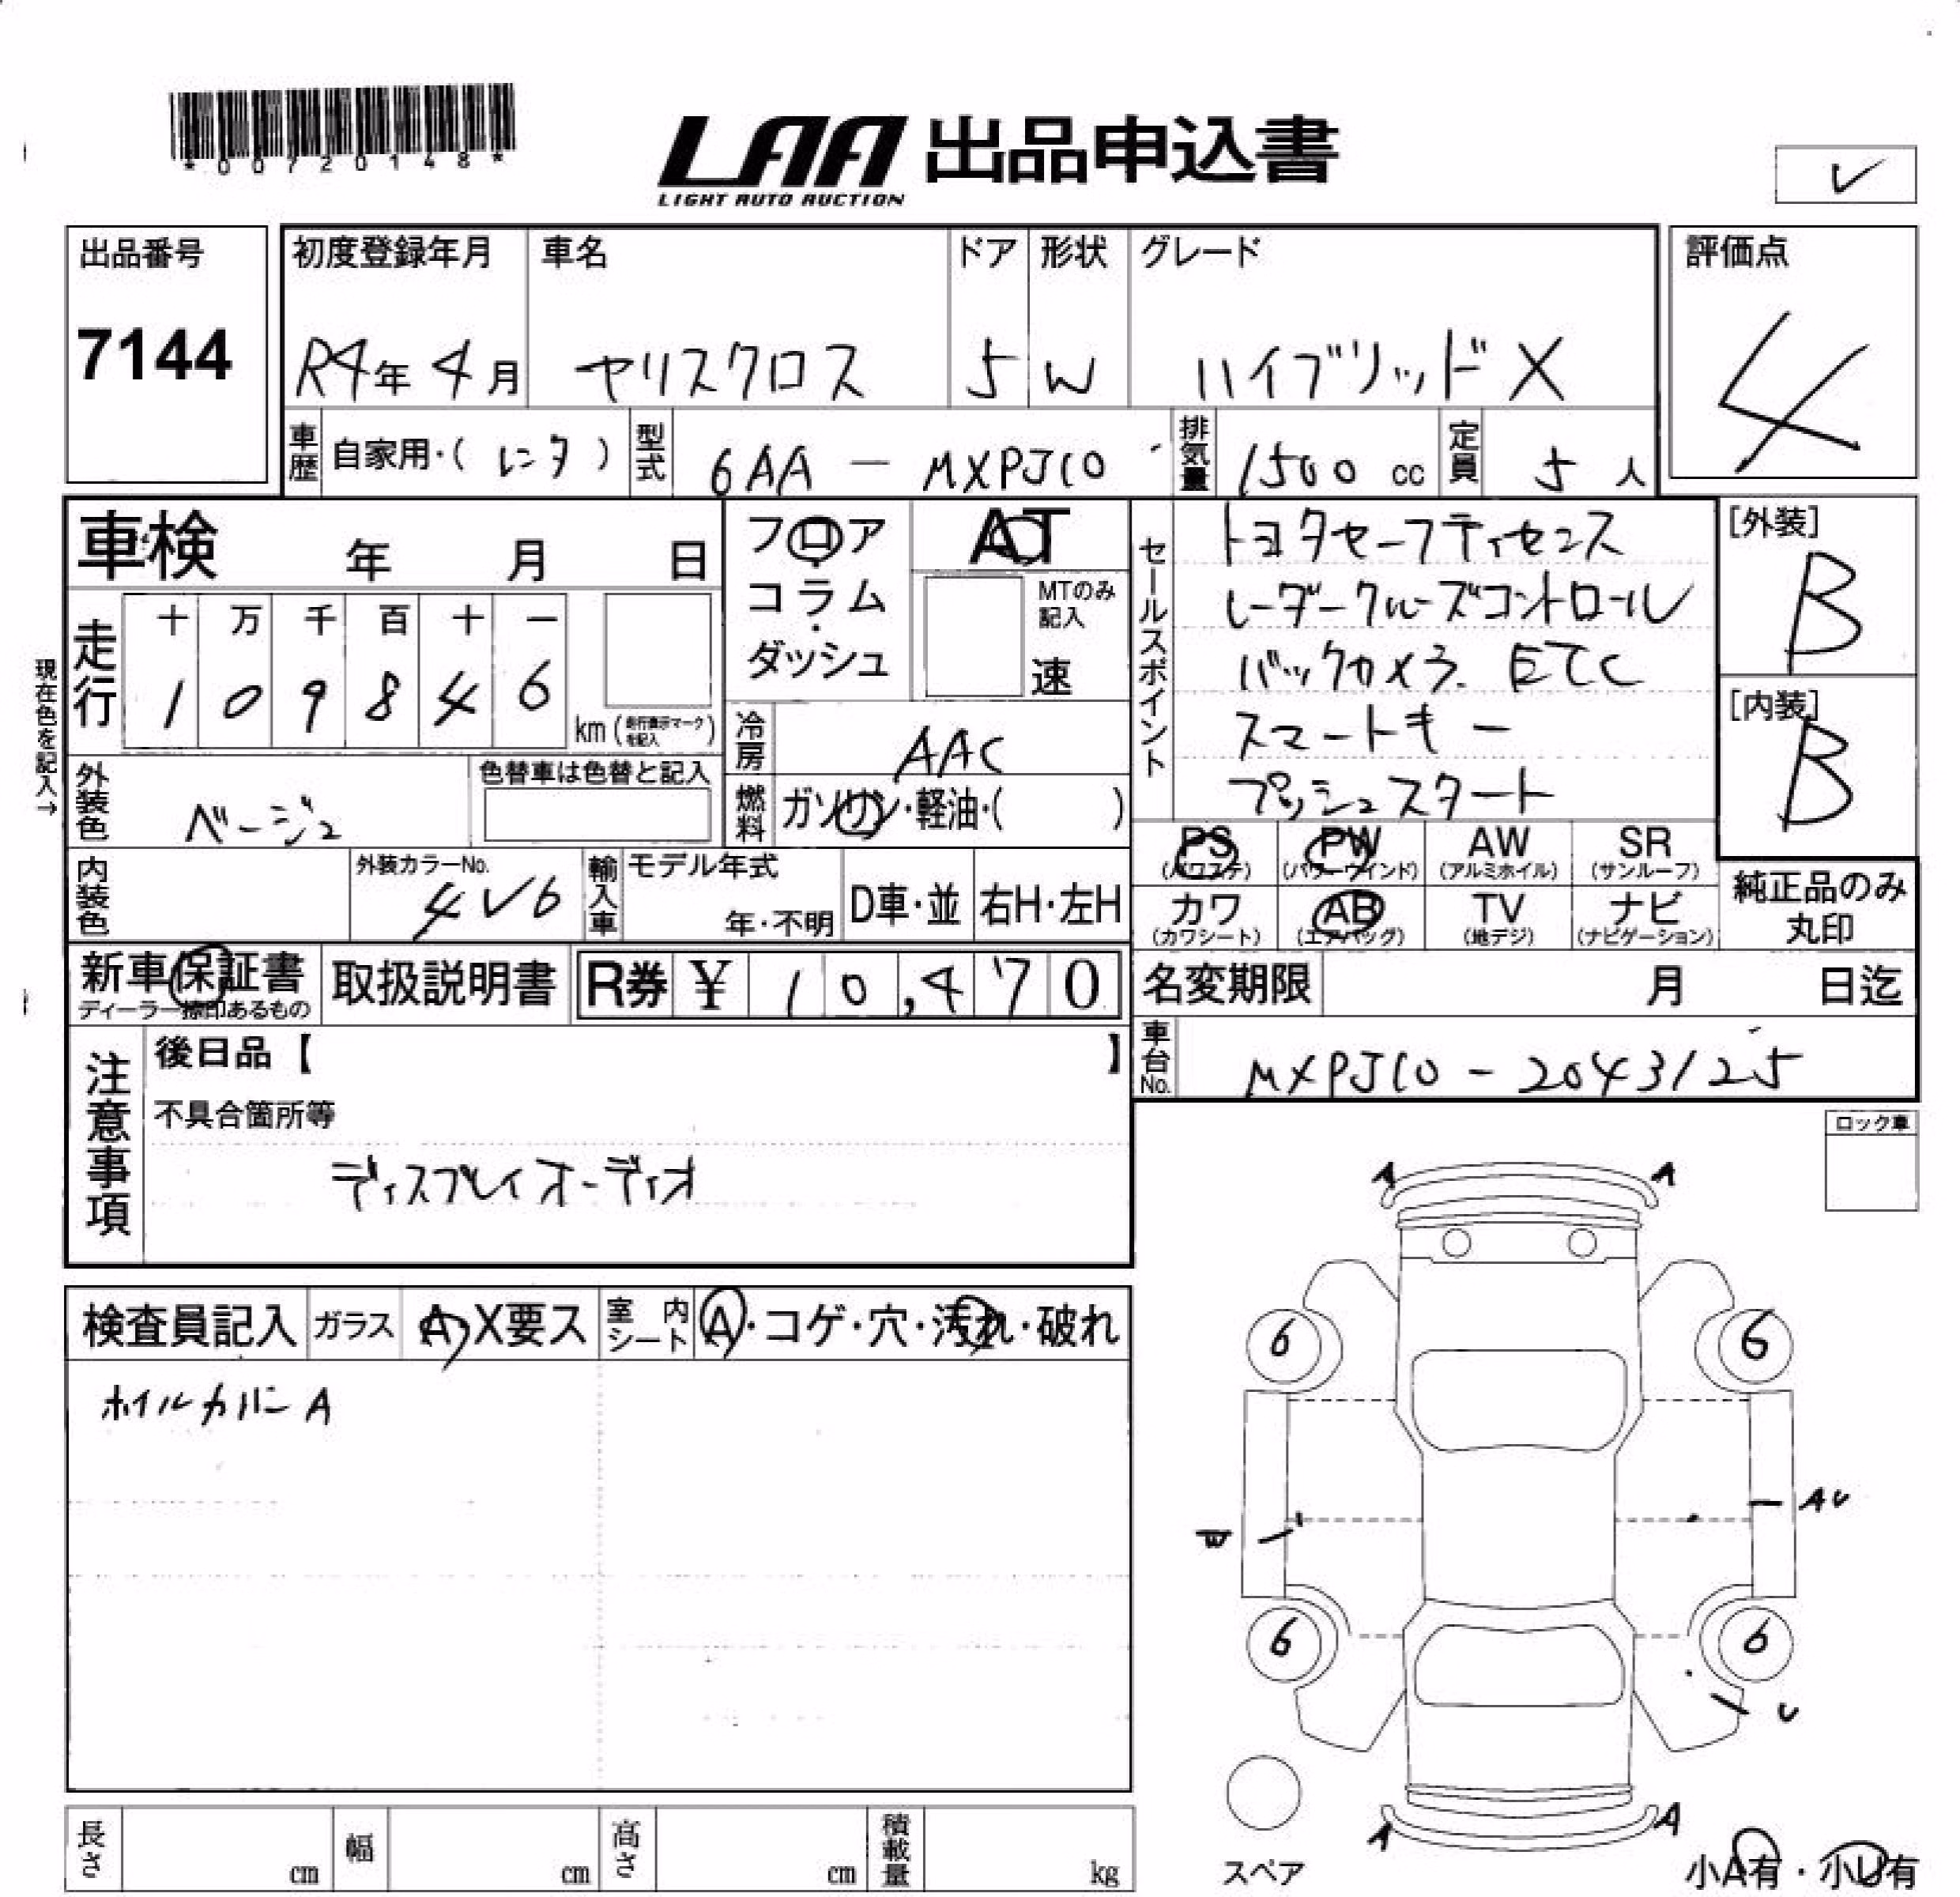 *00720148*
LAA 出品申込書
LIGHT AUTO AUCTION
出品番号
7144
初度登録年月
R4年 4月
車名
ヤリスクロス
ドア
5
形状
W
グレード
ハイブリッド X
評価点
4
車歴
自家用・( レンタ )
型式
6AA - MXPJ10
排気量
1500 cc
定員
5 人
車検 年 月 日
走行
十 万 千 百 十 一
1 0 9 8 4 6
km (走行表示マークを記入)
現在色を記入→
フロア
コラム
・
ダッシュ
AT
MTのみ
記入
速
冷房
AAC
燃料
ガソリン・軽油・( )
セールスポイント
トヨタセーフティセンス
レーダークルーズコントロール
バックカメラ. ETC
スマートキー
プッシュスタート
[外装]
B
[内装]
B
外装色
ベージュ
色替車は色替と記入
内装色
外装カラーNo.
4V6
輸入車
モデル年式
年・不明
D車・並
右H・左H
PS
(パワステ)
PW
(パワーウインド)
AW
(アルミホイル)
SR
(サンルーフ)
カワ
(カワシート)
AB
(エアバッグ)
TV
(地デジ)
ナビ
(ナビゲーション)
純正品のみ
丸印
新車保証書
ディーラー捺印あるもの
取扱説明書
R券 ¥ 10,470
名変期限 月 日迄
車台No.
MXPJ10 - 2043125
注意事項
後日品【 】
不具合箇所等
ディスプレイオーディオ
ロック車
検査員記入
ガラス
A・X要ス
室内シート
A・コゲ・穴・汚れ・破れ
ホイルカバー A
A A
6 6
W
AU
6 6
U
A A
スペア
小A有・小U有
長さ cm
幅 cm
高さ cm
積載量 kg